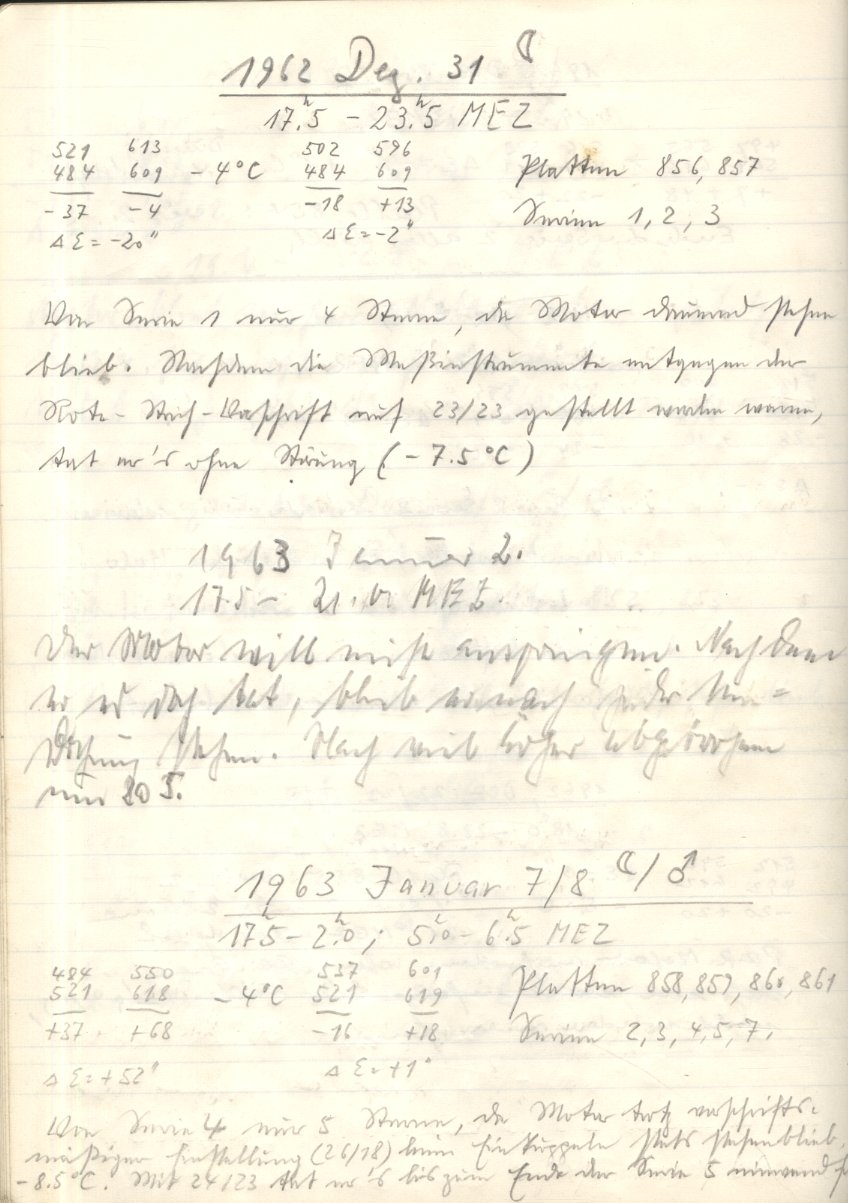 1962 Dez. 31 ☾
17.ʰ5 – 23.ʰ5 MEZ
521 613 502 596
484 609 – 4°C 484 609 Platten 856, 857
-37 -4 -18 +13 Serien 1, 2, 3
Δ Ɛ = -20" Δ Ɛ = -2"
Von Serie 1 nur 4 Sterne, da Motor dauernd stehen
blieb. Nachdem die Meßinstrumente entgegen der
Rote-Vorschrift auf 23/23 gestellt worden waren,
tat er's ohne Störung (- 7.5 °C)
1963 Januar 2.
17.5 – 21. MEZ.
Der Motor will nicht anspringen. Nachdem
er es doch tat, blieb er nach jeder Um=
drehung stehen. Nach abgebrochen
1963 Januar 7/8 ☾/♂
17ʰ5 – 2.ʰ0 ; 5.ʰ0 – 6.ʰ5 MEZ
484 550 537 601
521 618 – 4°C 521 619 Platten 858, 859, 860, 861
+37 +68 -16 +18 Serien 2, 3, 4, 5, 7.
Δ Ɛ = +52" Δ Ɛ = +1"
Von Serie 4 nur 5 Sterne, da Motor trotz vorschrifts-
mäßiger Einstellung (26/18) beim Einkuppeln stets stehenblieb.
-8.5 °C. Mit 24/23 tat er's bis zum Ende der Serie 5